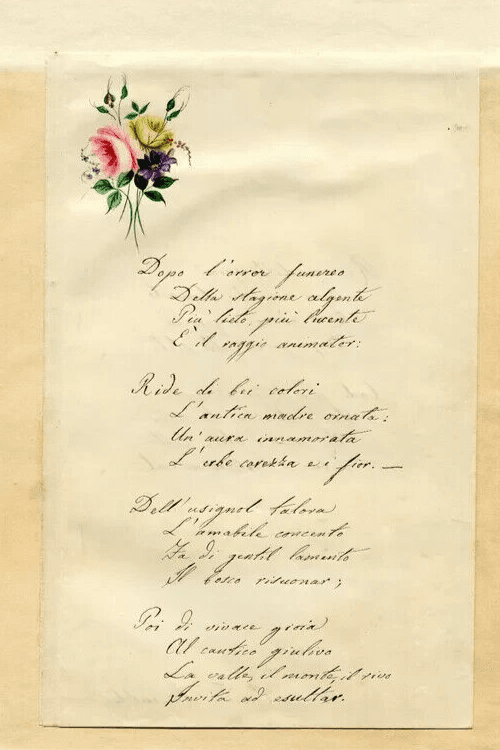 Dopo l'orror funereo
Della stagione algente
Più lieto, più lucente
È il raggio animator:
Ride di bei colori
L'antica madre ornata:
Un' aura innamorata
L'erbe carezza e i fior. —
Dell' usignol talora
L'amabile concento
Fa di gentil lamento
Il bosco risuonar;
Poi di vivace gioia
Al cantico giulivo
La valle, il monte, il rivo
Invita ad esultar.